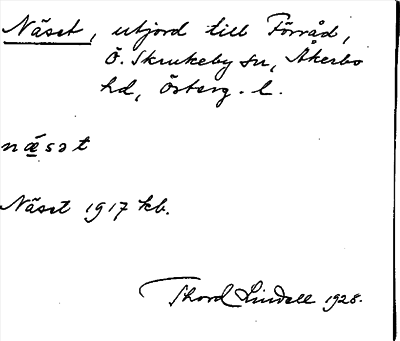 Näset, utjord till Förråd,
Ö. Skrukeby sn, Åkerbo
hd, Österg. l.
næ̂sət
Näset 1917 kb.
Thord Lindell 1928.